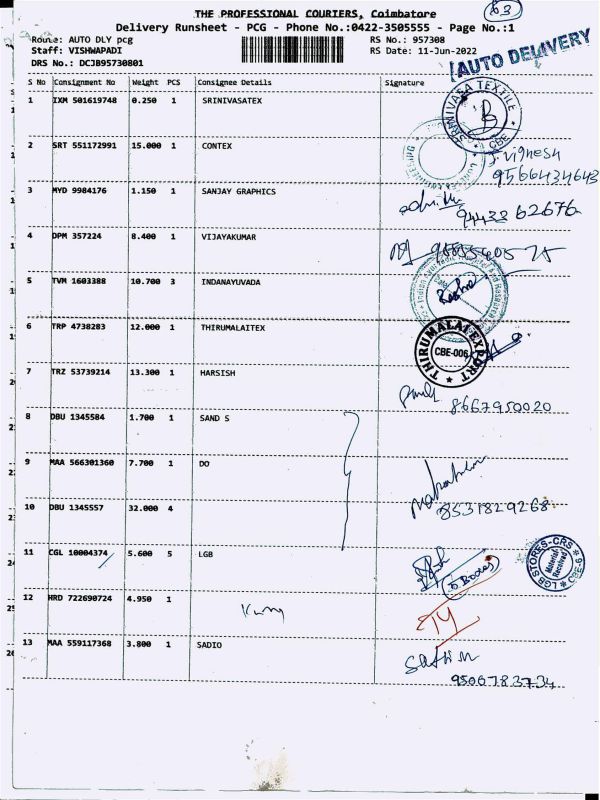 63
THE PROFESSIONAL COURIERS, Coimbatore
Delivery Runsheet - PCG - Phone No.:0422-3505555 - Page No.:1
Route: AUTO DLY pcg RS No.: 957308
Staff: VISHWAPADI RS Date: 11-Jun-2022
DRS No.: DCJB95730801
AUTO DELIVERY
S No Consignment No Weight PCS Consignee Details Signature
1 IXM 501619748 0.250 1 SRINIVASATEX
SRINIVASA TEXTILE CBE
2 SRT 551172991 15.000 1 CONTEX
S. vignesh
9566434643
3 MYD 9984176 1.150 1 SANJAY GRAPHICS
94438 62676
4 DPM 357224 8.400 1 VIJAYAKUMAR
5 TVM 1603388 10.700 3 INDANAYUVADA
6 TRP 4738283 12.000 1 THIRUMALAITEX
THIRUMALAI EXPORT
CBE-006
7 TRZ 53739214 13.300 1 HARSISH
8667950020
8 DBU 1345584 1.700 1 SAND S
9 MAA 566301360 7.700 1 DO
10 DBU 1345557 32.000 4
8531829268
11 CGL 10004374 5.600 5 LGB
(5 Boxes)
LGB STORES-CRS CBE-6
Material Received
12 HRD 722690724 4.950 1
13 MAA 559117368 3.800 1 SADIO
9506783734